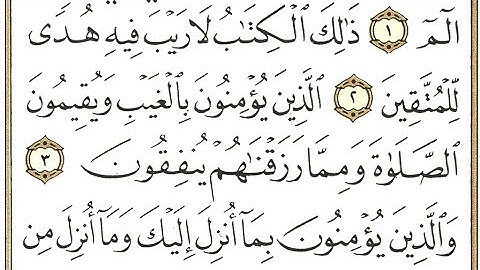 الٓمٓ ١ ذَٰلِكَ ٱلْكِتَٰبُ لَا رَيْبَ فِيهِ هُدًى
لِّلْمُتَّقِينَ ٢ ٱلَّذِينَ يُؤْمِنُونَ بِٱلْغَيْبِ وَيُقِيمُونَ
ٱلصَّلَوٰةَ وَمِمَّا رَزَقْنَٰهُمْ يُنفِقُونَ ٣
وَٱلَّذِينَ يُؤْمِنُونَ بِمَآ أُنزِلَ إِلَيْكَ وَمَآ أُنزِلَ مِن